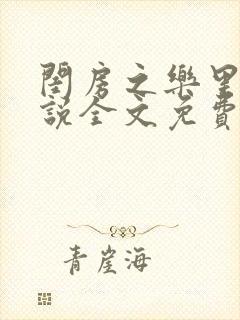 閨房之樂里
說全文免費
青崖海